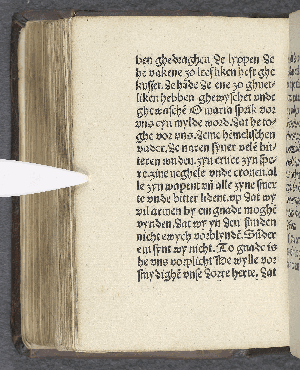 ben ghedraghen. De lyppen de
he vakene so leefliken heft ghe
kusset. De hāde de ene so ghuet-
liken hebben ghewyschet vnde
ghe waschē O maria sprik vor
vns eyn mylde word. Dat he to-
ghe vor vns. deme hēmelschen
vader. De naren syner vele bit-
teren wnden. syn cruce syn spe-
re. syne neghele vnde cronen. al
le syn wapent vñ alle syne smer
te vnde bitter lident. vp dat wy
vil armen by em gnade moghē
vynden. Dat wy yn den sunden
nicht ewych vorblyndē. Sūder
em synt wy nicht. To gnade is
he vns vorplicht He wylle vor
smydighē vnse dorre herte. Dat